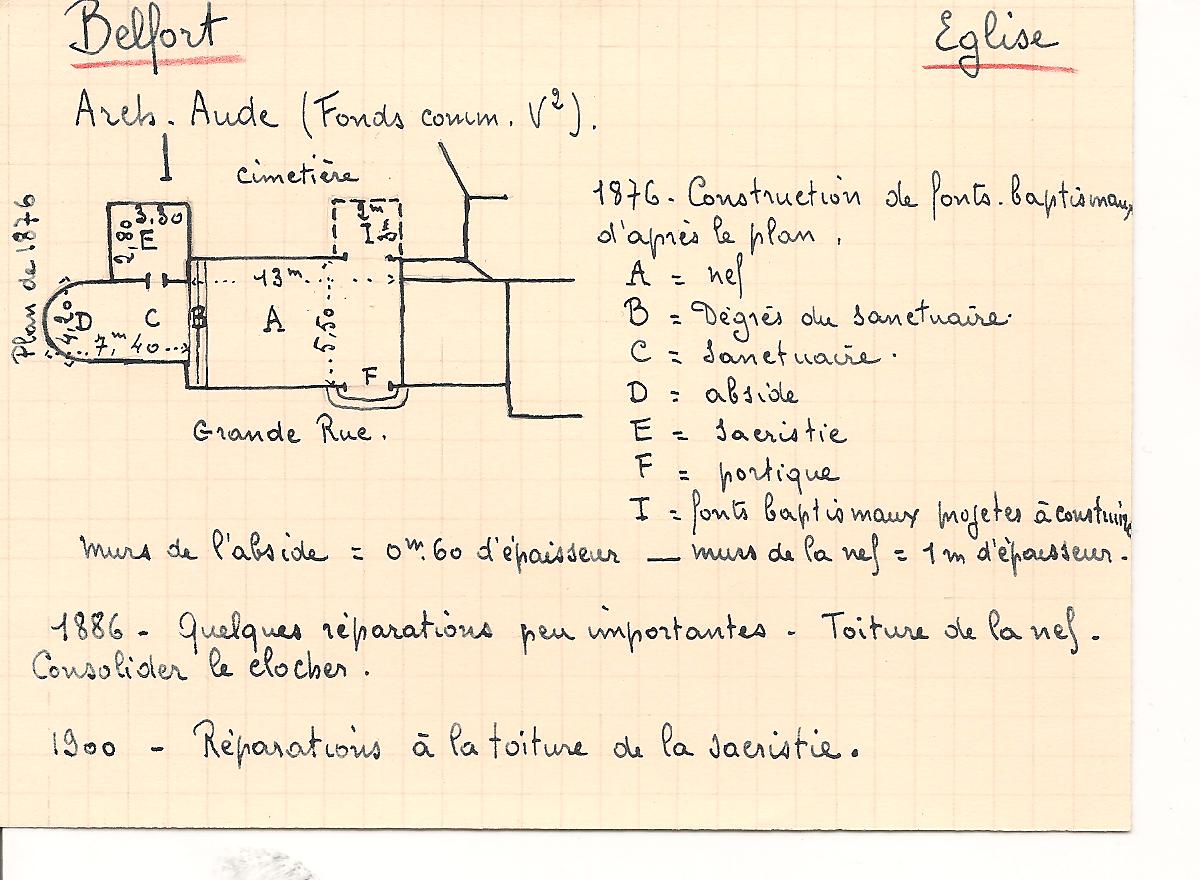 Belfort
Eglise
Arch. Aude (Fonds comm. V²).
cimetière
Plan de 1876
3,30
2,80
E
2m
I
13m
4,20
D
C
B
A
5,50
7,m40
F
Grande Rue.
1876 - Construction de fonts-baptismaux
d'après le plan.
A = nef
B = Dègrès du sanctuaire.
C = sanctuaire.
D = abside
E = sacristie
F = portique
I = fonts baptismaux projetes à construire
murs de l'abside = 0m.60 d'épaisseur — murs de la nef = 1m d'épaisseur.
1886 - Quelques réparations peu importantes - Toiture de la nef.
Consolider le clocher.
1900 - Réparations à la toiture de la sacristie.